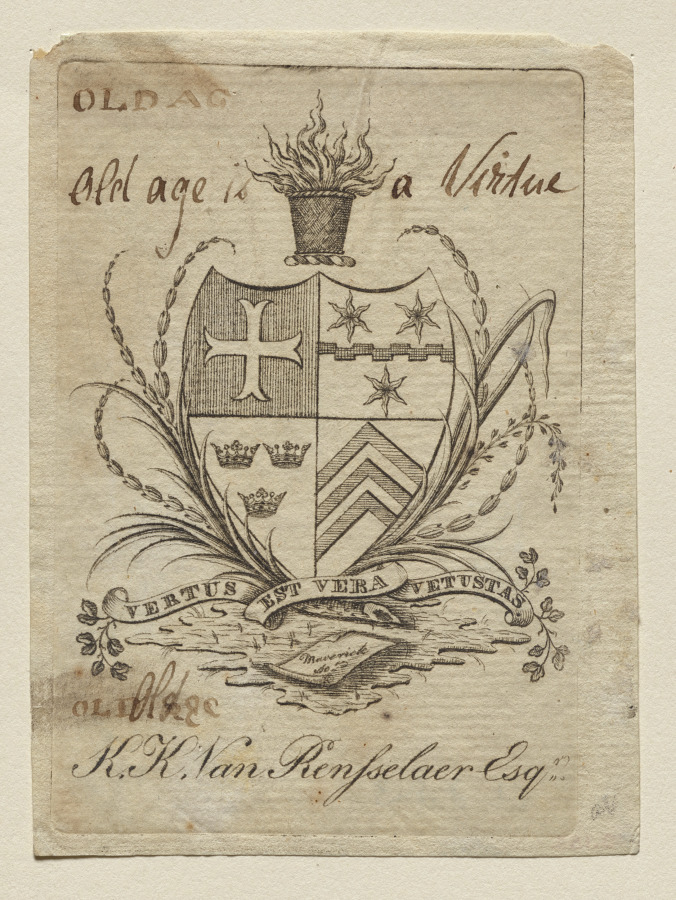 OLD AG
Old age is a Virtue
VERTUS EST VERA VETUSTAS
Maverick
Sc.
OLD
K. K. Van Rensselaer Esqr.